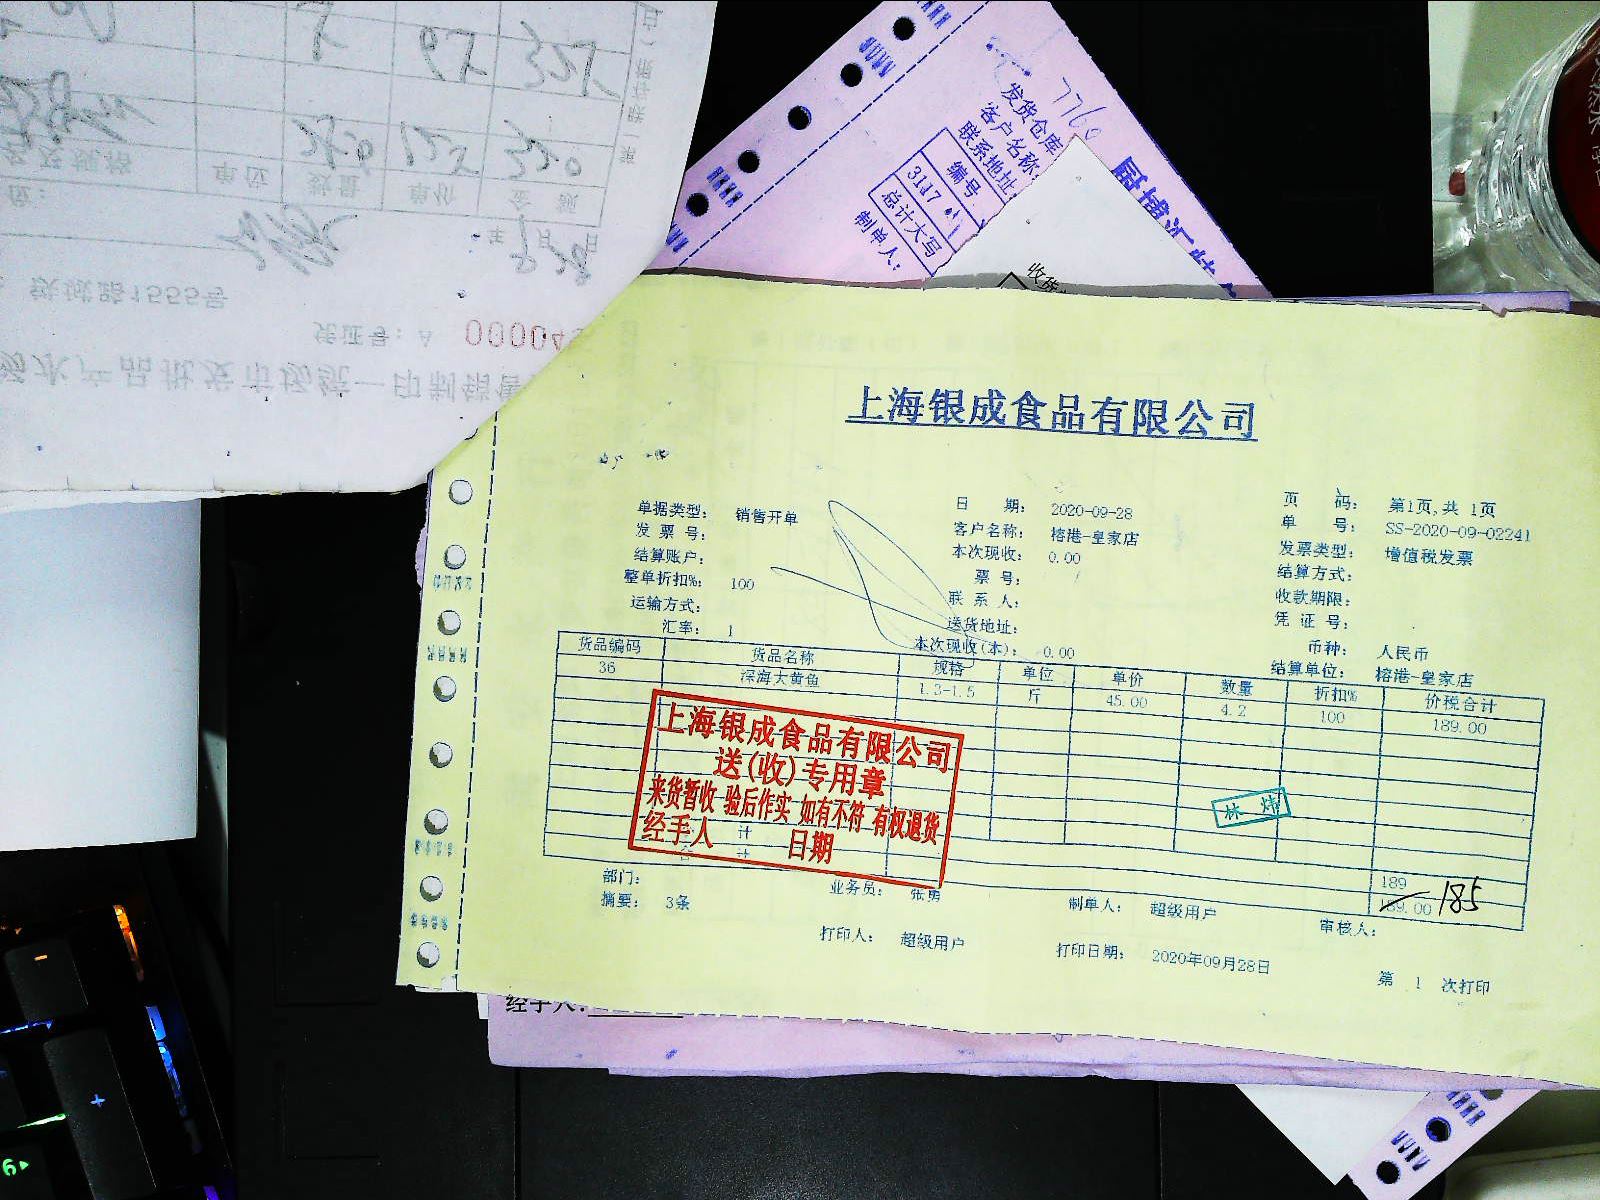 上海银成食品有限公司
单据类型: 销售开单
日 期: 2020-09-28
页 码: 第1页,共 1页
发 票 号:
客户名称: 榕港-皇家店
单 号: SS-2020-09-02241
结算账户:
本次现收: 0.00
发票类型: 增值税发票
整单折扣%: 100
票 号:
结算方式:
运输方式:
联 系 人:
收款期限:
汇率: 1
送货地址:
凭 证 号:
本次现收(本): 0.00
币种: 人民币
结算单位: 榕港-皇家店
货品编码 货品名称 规格 单位 单价 数量 折扣% 价税合计
36 深海大黄鱼 1.3-1.5 斤 45.00 4.2 100 189.00
上海银成食品有限公司
送(收)专用章
来货暂收 验后作实 如有不符 有权退货
经手人 日期
林 炜
计
合 计
189
189.00 185
部门:
业务员: 张勇
制单人: 超级用户
审核人:
摘要: 3条
打印人: 超级用户
打印日期: 2020年09月28日
第 1 次打印
经手人:
7760
发货仓库
客户名称:
联系地址:
编号
3117
总计大写
制单人:
收货
单位 数量 单价 金 额
年 月 日
铁城路1555号
凭证号: A 00004
水产品批发市场统一印制销售